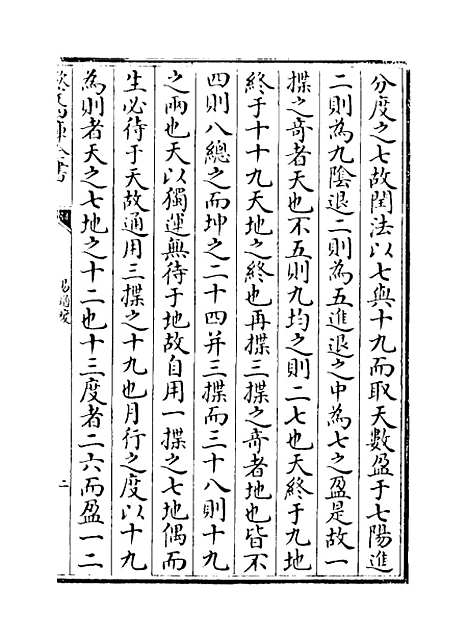 分度之七故閏法以七與十九而取天數盈于七陽進
二則為九陰退二則為五進退之中為七之盈是故一
揲之奇者天也不五則九均之則二七也天終于九地
終于十十九天地之終也再揲三揲之奇者地也皆不
四則八總之而坤之二十四并三揲而三十八則十九
之兩也天以獨運無待于地故自用一揲之七地偶而
生必待于天故通用三揲之十九也月行之度以十九
為則者天之七地之十二也十三度者二六而盈一二
欽定四庫全書
易通變
二